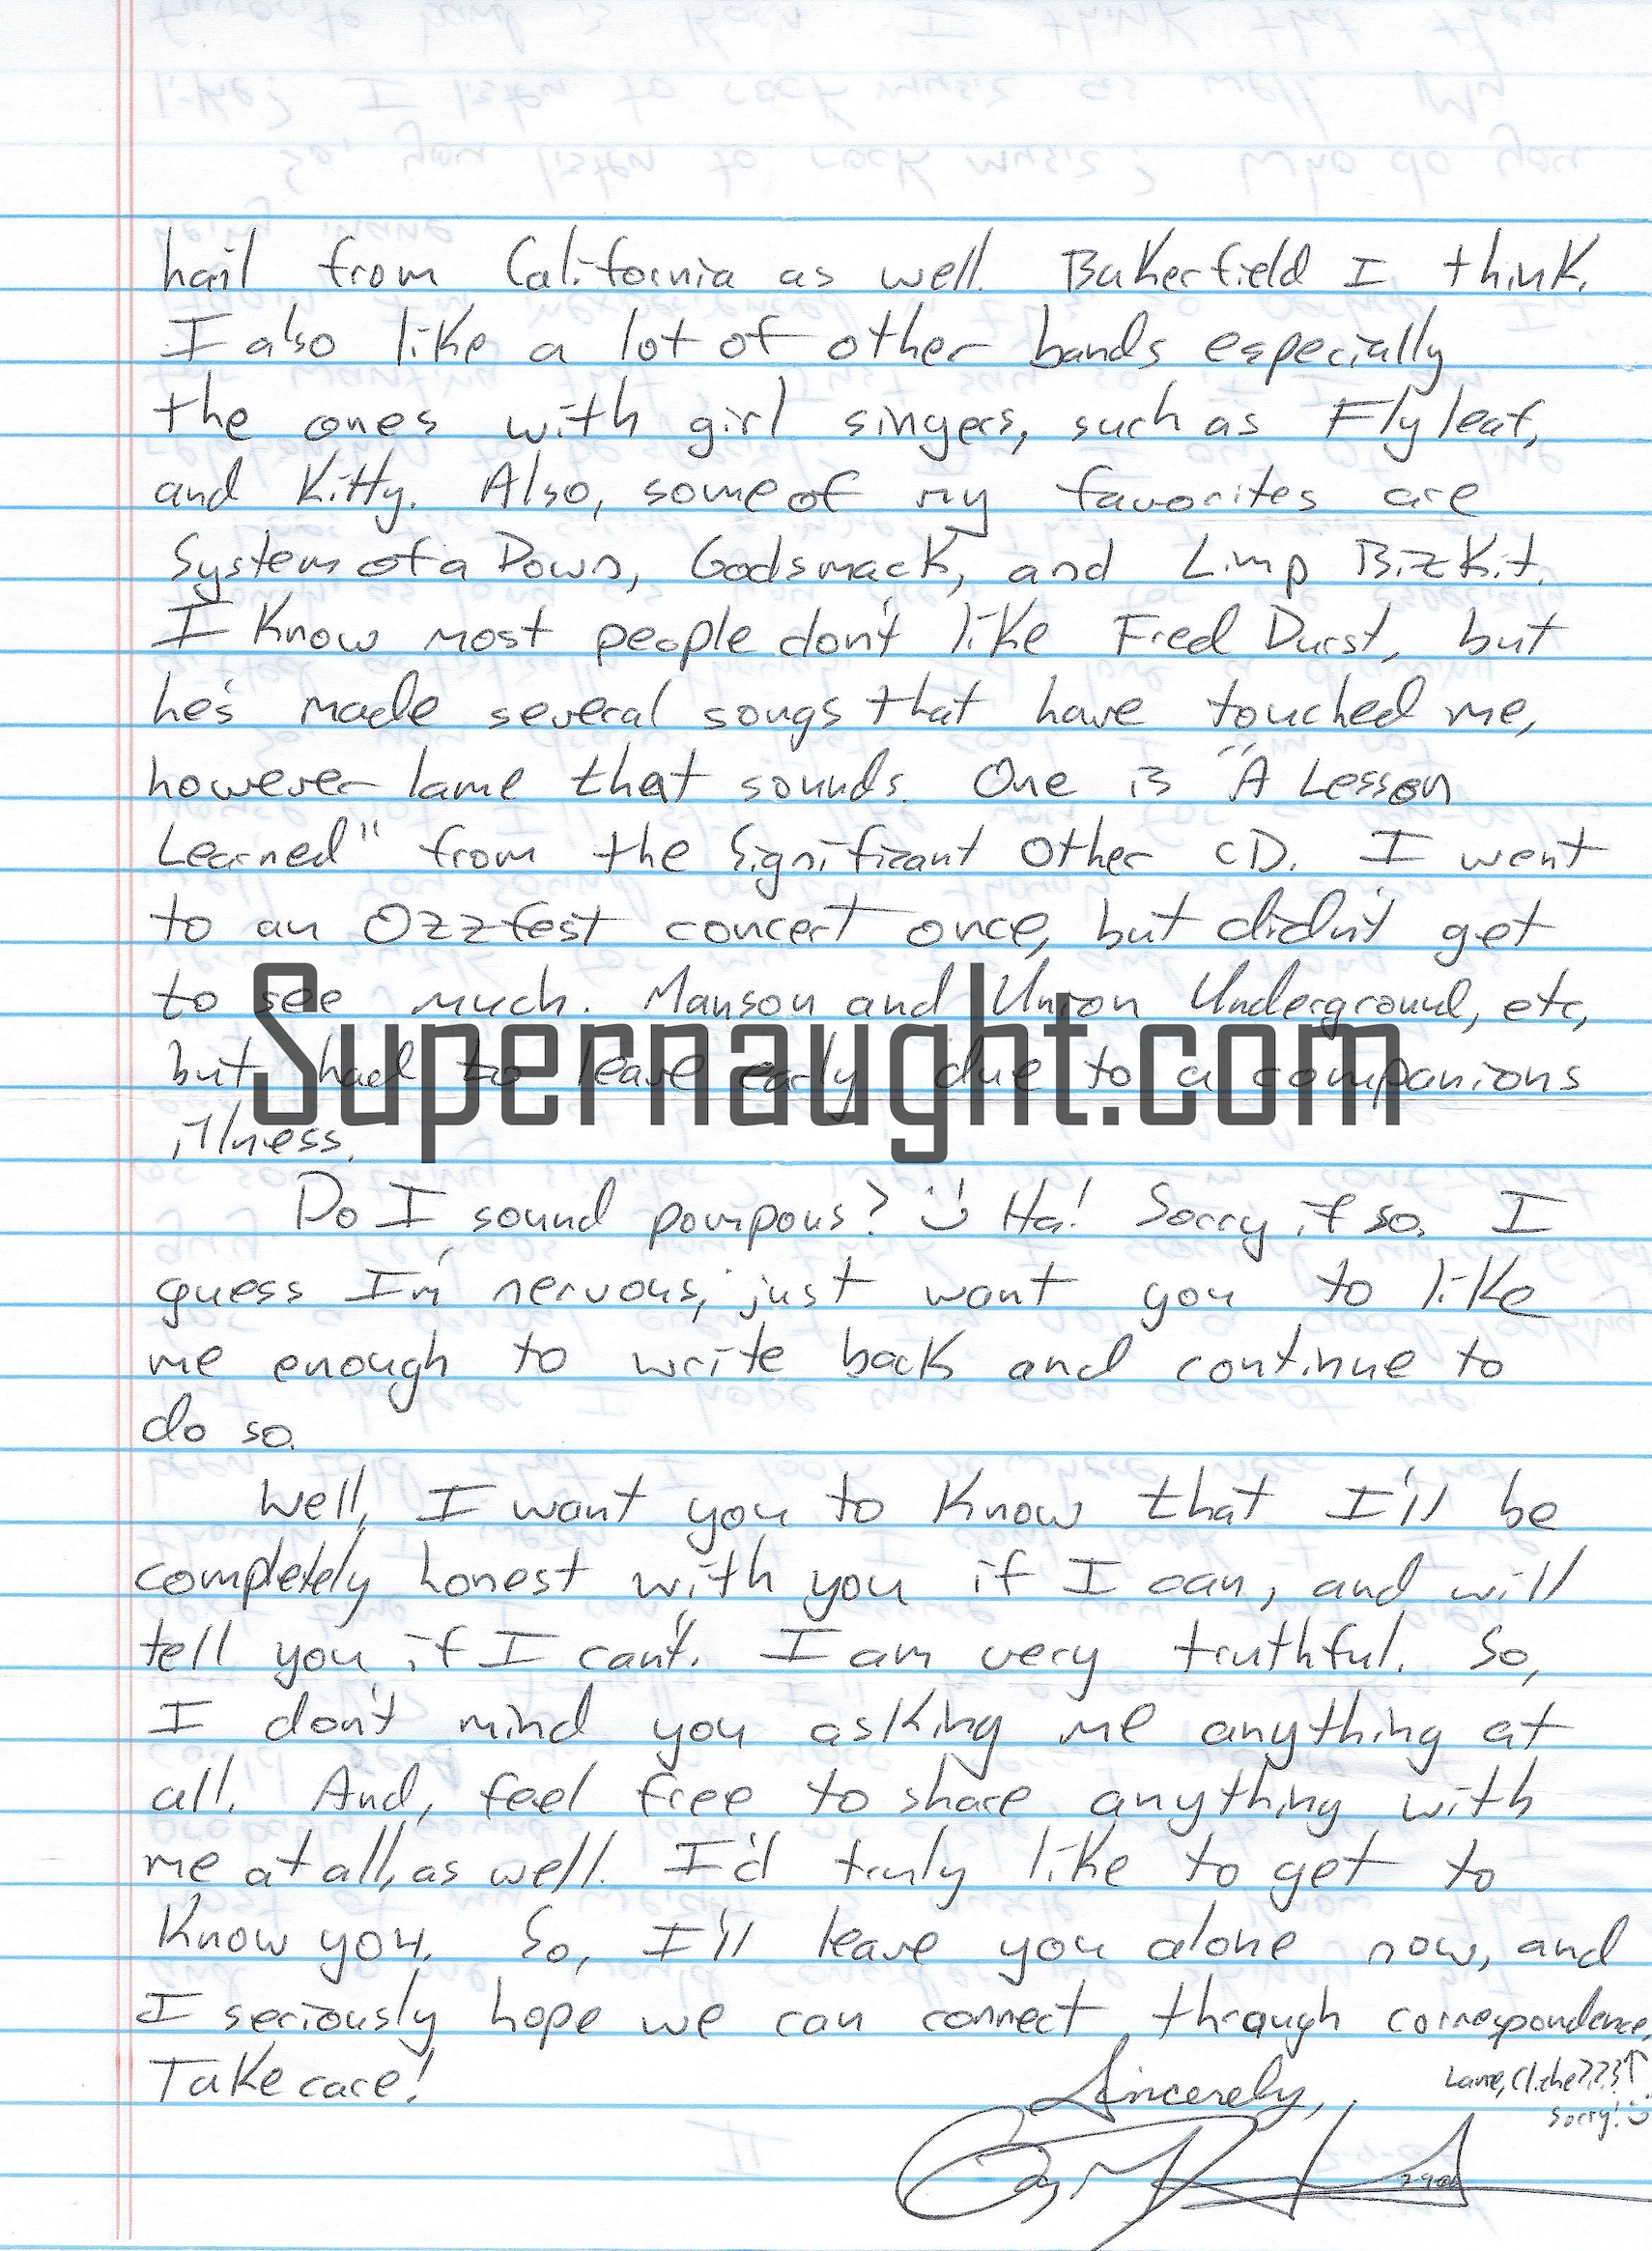 hail from California as well. Bakerfield I think.
I also like a lot of other bands especially
the ones with girl singers, such as Flyleaf,
and Kitty. Also, some of my favorites are
System of a Down, Godsmack, and Limp Bizkit.
I know most people don't like Fred Durst, but
he's made several songs that have touched me,
however lame that sounds. One is "A Lesson
Learned" from the Significant Other CD. I went
to an Ozzfest concert once, but didn't get
to see much. Manson and Union Underground, etc,
Supernaught.com
but had to leave early due to a companions
illness.
Do I sound pompous? :) Ha! Sorry if so. I
guess I'm nervous, just want you to like
me enough to write back and continue to
do so.
Well, I want you to know that I'll be
completely honest with you if I can, and will
tell you if I can't. I am very truthful. So,
I don't mind you asking me anything at
all. And, feel free to share anything with
me at all, as well. I'd truly like to get to
know you. So, I'll leave you alone now, and
I seriously hope we can connect through correspondence.
Take care!
Lame, Cliche???↑
Sorry! :)
Sincerely,